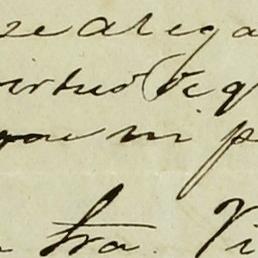 se alega
virtud de q
que mi p
tra. Vi